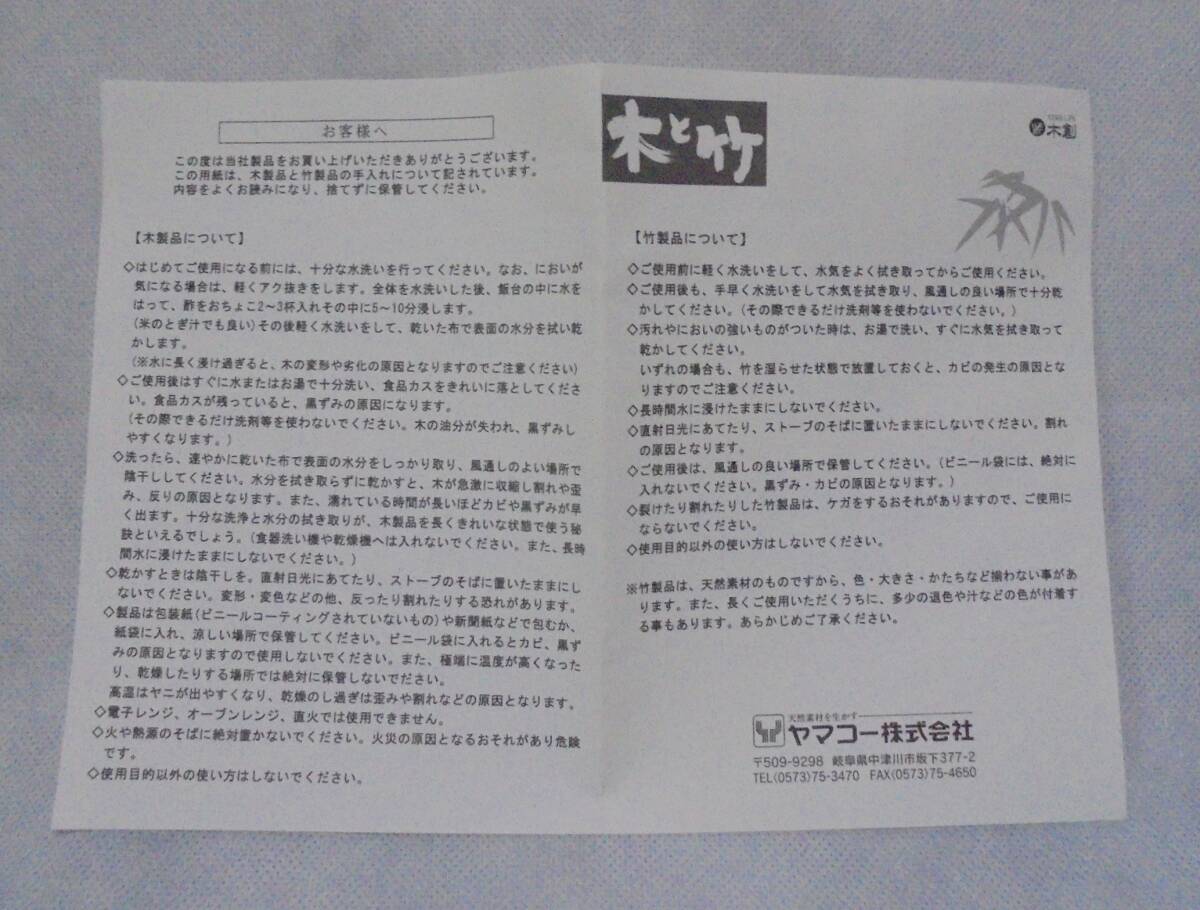 お客様へ
この度は当社製品をお買い上げいただきありがとうございます。
この用紙は、木製品と竹製品の手入れについて記されています。
内容をよくお読みになり、捨てずに保管してください。
【木製品について】
◇はじめてご使用になる前には、十分な水洗いを行ってください。なお、においが
気になる場合は、軽くアク抜きをします。全体を水洗いした後、飯台の中に水を
はって、酢をおちょこ2～3杯入れその中に5～10分浸します。
(米のとぎ汁でも良い)その後軽く水洗いをして、乾いた布で表面の水分を拭い乾
かします。
(※水に長く浸け過ぎると、木の変形や劣化の原因となりますのでご注意ください)
◇ご使用後はすぐに水またはお湯で十分洗い、食品カスをきれいに落としてくださ
い。食品カスが残っていると、黒ずみの原因になります。
(その際できるだけ洗剤等を使わないでください。木の油分が失われ、黒ずみし
やすくなります。)
◇洗ったら、速やかに乾いた布で表面の水分をしっかり取り、風通しのよい場所で
陰干ししてください。水分を拭き取らずに乾かすと、木が急激に収縮し割れや歪
み、反りの原因となります。また、濡れている時間が長いほどカビや黒ずみが早
く出ます。十分な洗浄と水分の拭き取りが、木製品を長くきれいな状態で使う秘
訣といえるでしょう。(食器洗い機や乾燥機へは入れないでください。また、長時
間水に浸けたままにしないでください。)
◇乾かすときは陰干しを。直射日光にあてたり、ストーブのそばに置いたままにし
ないでください。変形・変色などの他、反ったり割れたりする恐れがあります。
◇製品は包装紙(ビニールコーティングされていないもの)や新聞紙などで包むか、
紙袋に入れ、涼しい場所で保管してください。ビニール袋に入れるとカビ、黒ず
みの原因となりますので使用しないでください。また、極端に温度が高くなった
り、乾燥したりする場所では絶対に保管しないでださい。
高温はヤニが出やすくなり、乾燥のし過ぎは歪みや割れなどの原因となります。
◇電子レンジ、オーブンレンジ、直火では使用できません。
◇火や熱源のそばに絶対置かないでください。火災の原因となるおそれがあり危険
です。
◇使用目的以外の使い方はしないでください。
木と竹
木創
【竹製品について】
◇ご使用前に軽く水洗いをして、水気をよく拭き取ってからご使用ください。
◇ご使用後も、手早く水洗いをして水気を拭き取り、風通しの良い場所で十分乾
かしてください。(その際できるだけ洗剤等を使わないでください。)
◇汚れやにおいの強いものがついた時は、お湯で洗い、すぐに水気を拭き取って
乾かしてください。
いずれの場合も、竹を湿らせた状態で放置しておくと、カビの発生の原因とな
りますのでご注意ください。
◇長時間水に浸けたままにしないでください。
◇直射日光にあてたり、ストーブのそばに置いたままにしないでください。割れ
の原因となります。
◇ご使用後は、風通しの良い場所で保管してください。(ビニール袋には、絶対に
入れないでください。黒ずみ・カビの原因となります。)
◇裂けたり割れたりした竹製品は、ケガをするおそれがありますので、ご使用に
ならないでください。
◇使用目的以外の使い方はしないでください。
※竹製品は、天然素材のものですから、色・大きさ・かたちなど揃わない事があ
ります。また、長くご使用いただくうちに、多少の退色や汁などの色が付着す
る事もあります。あらかじめご了承ください。
天然素材を生かす
ヤマコー株式会社
〒509-9298 岐阜県中津川市坂下377-2
TEL(0573)75-3470 FAX(0573)75-4650